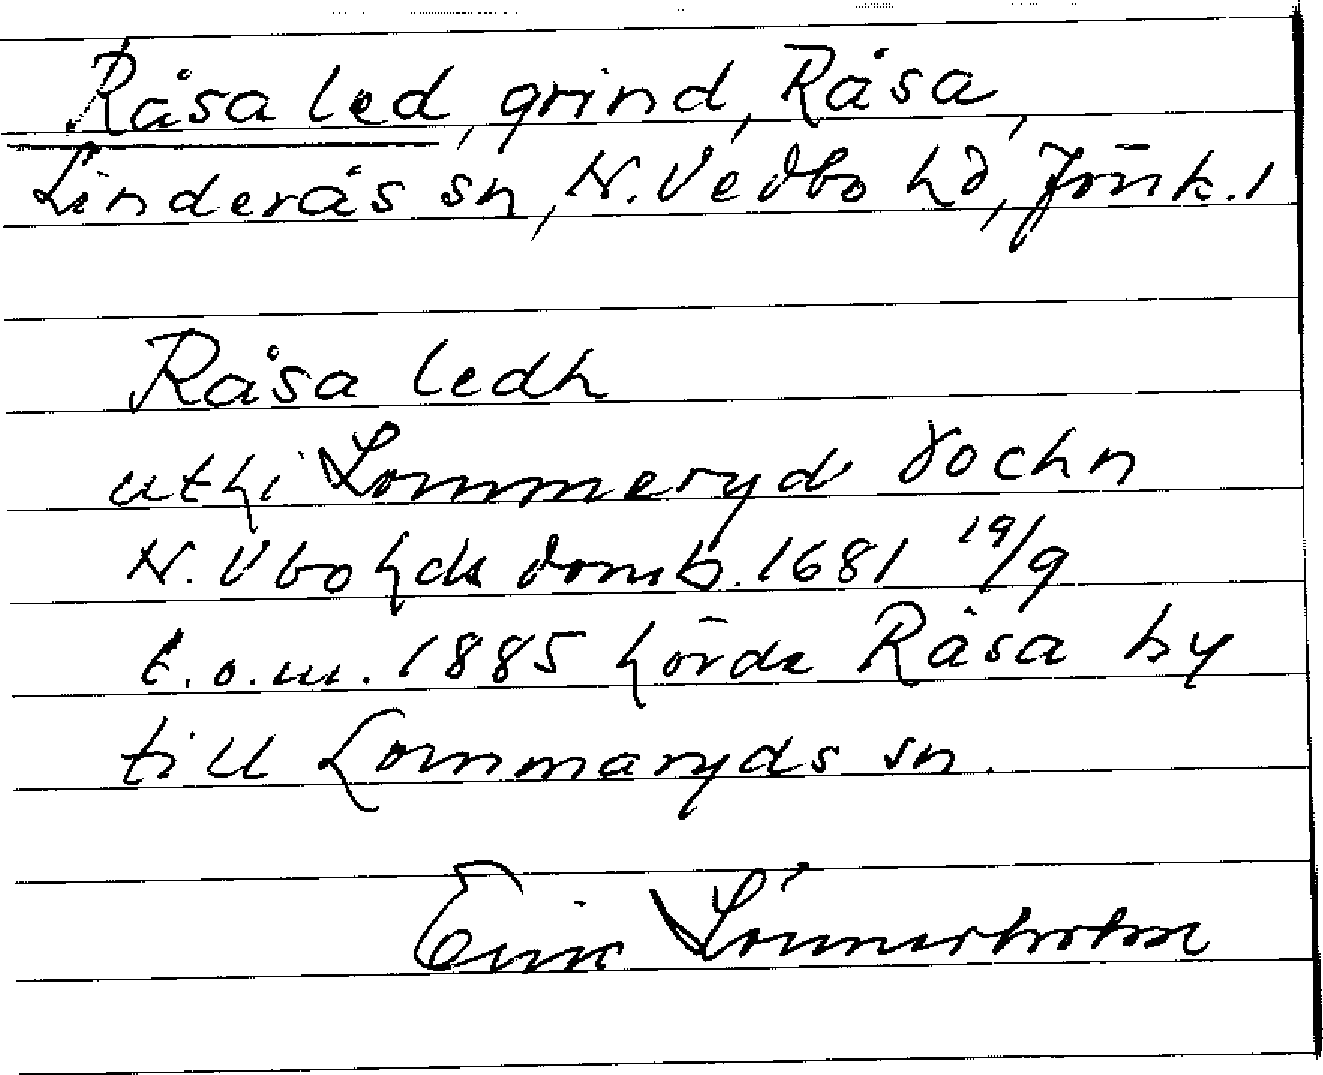 Råsa led, grind, Råsa,
Linderås sn, N. Vedbo hd, Jönk. l
Råsa ledh
uthi Lommeryd Sochn
N. Vbo hds domb. 1681 19/9
t.o.m. 1885 hörde Råsa by
till Lommaryds sn.
Eric Lönnerholm